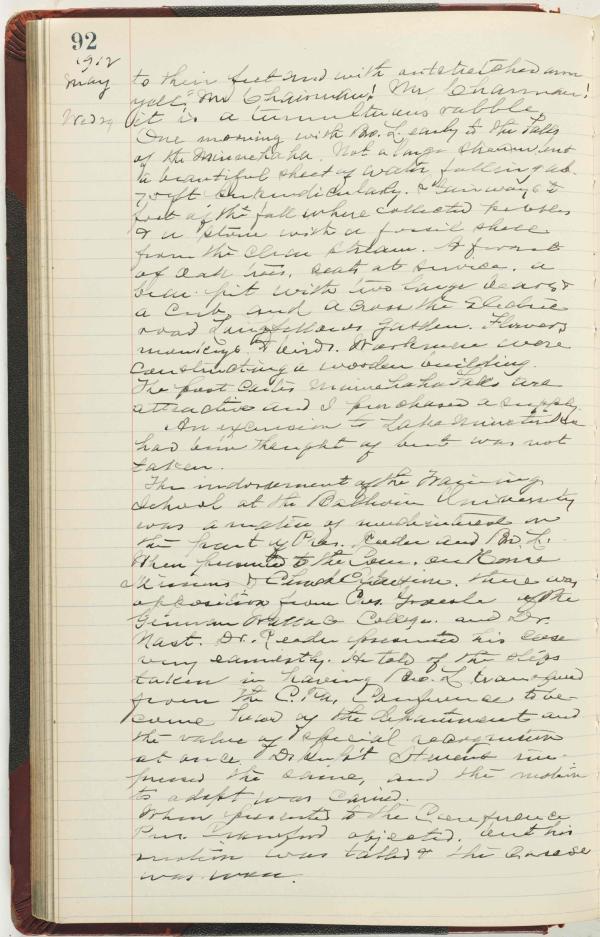 92
1912
May
to their feet and with outstretched arm
yell "Mr Chairman! Mr Chairman!
Wed 29
it is a tumultuous rabble.
One morning with Bro. L. early to the Falls
of the Minnehaha. Not a large stream, but
a beautiful sheet of water, falling ab.
70 ft perpendicularly. to
foot of the fall where collected pebbles
& a stone with a fossil shell
from the clear stream. A forest
of oak trees, seats at service, a
bear pit with two large bears &
a cub, and across the Electric
road Longfellows Garden. Flowers,
monkeys & birds. Workmen were
constructing a wooden building.
The post cards Minnehaha Falls are
attractive and I purchased a supply.
An excursion to Lake Minnetonka
had been thought of but was not
taken.
The indorsement of the Training
School at the Baldwin University
was a matter of much interest on
the part of Pres. Reeder and Bro. L.
When presented to the Com. on Home
Missions & Church Extension, there was
opposition from Pres. of the
German Wallace College. and Dr.
Nast. Dr. Reeder presented his case
very earnestly. He told of the steps
taken in having Bro. L transferred
from the C. Pa. Conference to be-
come head of the department and
the value of special recognition
at once. Dr. im-
pressed the same, and the motion
to adopt was carried.
When presented to the Conference
Crawford objected, but his
motion was tabled & the cause
was won.